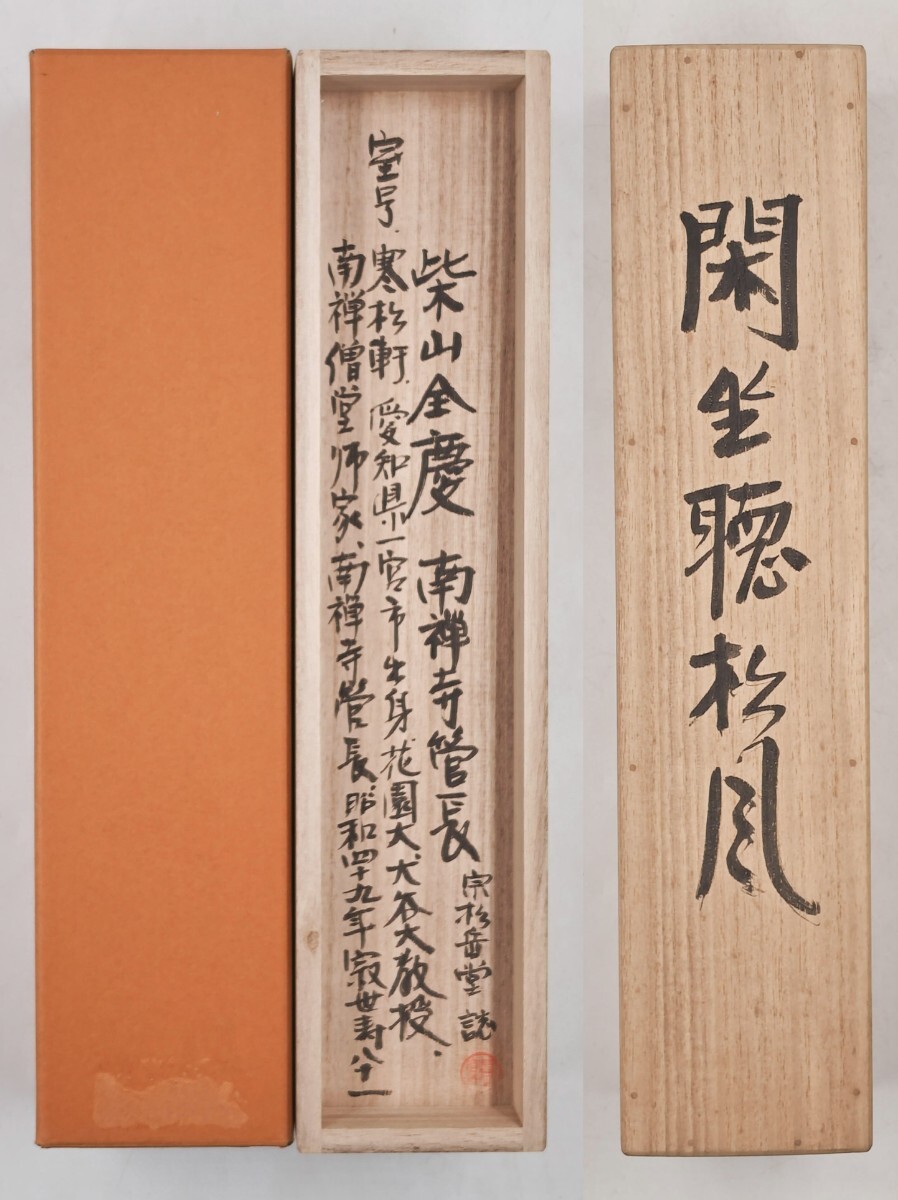 閑坐聴松風
柴山全慶 南禅寺管長
室号.寒松軒.愛知県一宮市出身花園大、大谷大教授.
南禅僧堂师家、南禅寺管長、昭和四十九年寂世寿八十一
宗松岳堂 誌